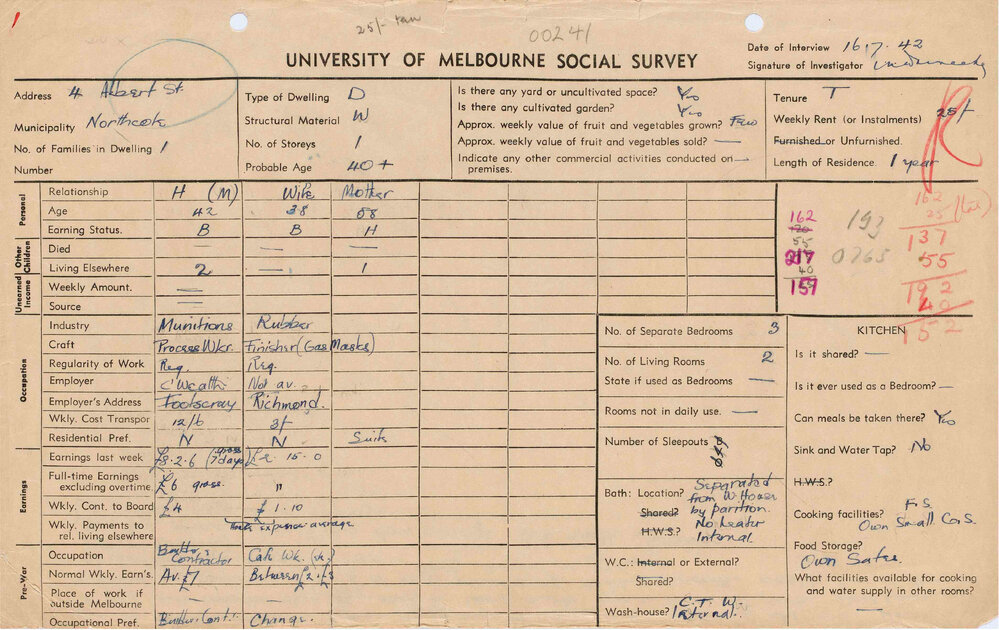 25/- tax
00241
UNIVERSITY OF MELBOURNE SOCIAL SURVEY
Date of Interview 16.7.42
Signature of Investigator
Address 4 Albert St
Municipality Northcote
No. of Families in Dwelling 1
Number
Type of Dwelling D
Structural Material W
No. of Storeys 1
Probable Age 40+
Is there any yard or uncultivated space? Yes
Is there any cultivated garden? Yes
Approx. weekly value of fruit and vegetables grown? Few
Approx. weekly value of fruit and vegetables sold? —
Indicate any other commercial activities conducted on — premises.
Tenure T
Weekly Rent (or Instalments) 25/-
Furnished or Unfurnished.
Length of Residence. 1 year
R
Personal
Relationship H (M) Wife Mother
Age 42 38 58
Earning Status. B B H
Other Children
Died — — —
Living Elsewhere 2 — 1
Unearned Income
Weekly Amount. —
Source —
162
120
55
217
40
157
193
0765
162
25 (tax)
137
55
192
40
152
Occupation
Industry Munitions Rubber
Craft Process Wkr. Finisher (Gas Masks)
Regularity of Work Reg. Reg.
Employer C'Wealth Not av.
Employer's Address Footscray Richmond.
Wkly. Cost Transpor 12/6 3/-
Residential Pref. N N Suits
Earnings
Earnings last week £8.2.6 (gross 7 days) £2. 15.0
Full-time Earnings excluding overtime. £6 gross. "
Wkly. Cont. to Board £4 £1.10
expenses average
Wkly. Payments to rel. living elsewhere
Pre-War
Occupation Builder's Contractor Cafe Wk.
Normal Wkly. Earn's. Av. £7 Between £2 + £3
Place of work if outside Melbourne — —
Occupational Pref. Builder, Cont. Change.
No. of Separate Bedrooms 3
No. of Living Rooms 2
State if used as Bedrooms —
Rooms not in daily use. —
Number of Sleepouts
Bath: Location? Separated from W. House by partition.
Shared? No heater
H.W.S.? Internal.
W.C.: Internal or External?
Shared?
Wash-house? C. T. W. Internal.
KITCHEN
Is it shared? —
Is it ever used as a Bedroom? —
Can meals be taken there? Yes
Sink and Water Tap? No
H.W.S.?
Cooking facilities? F.S. Own Small G.S.
Food Storage? Own Safe.
What facilities available for cooking and water supply in other rooms?
—